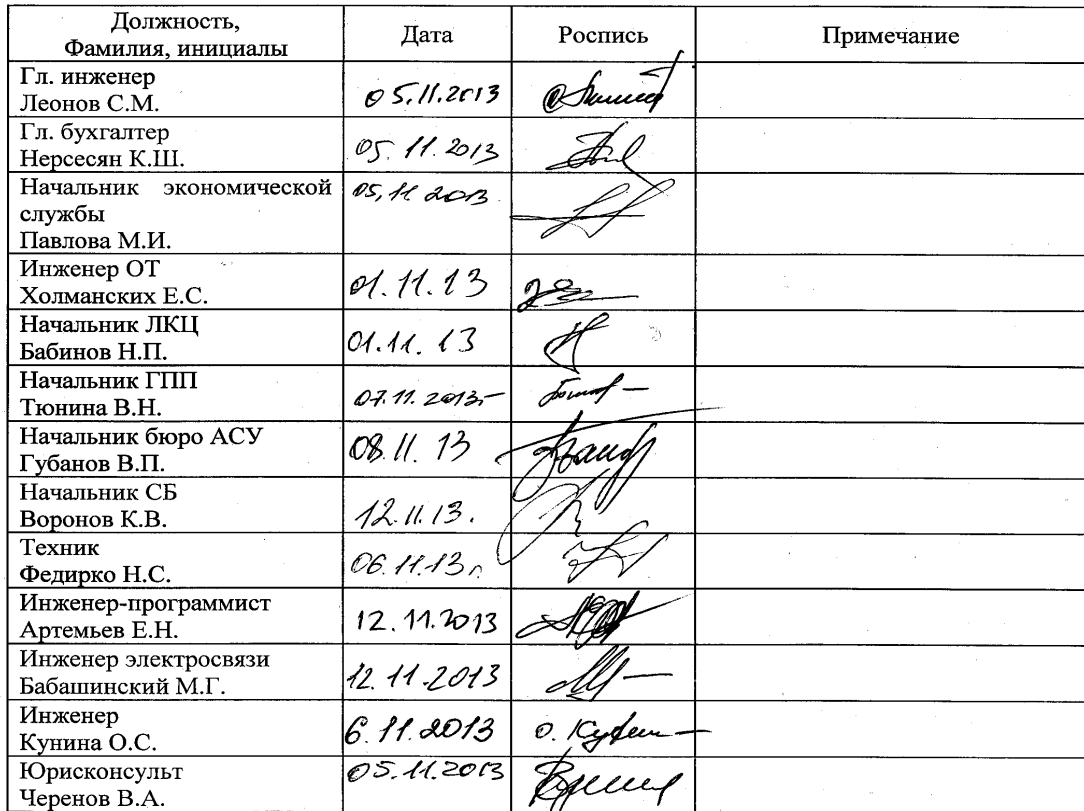 Должность,
Фамилия, инициалы
Дата
Роспись
Примечание
Гл. инженер
Леонов С.М.
05.11.2013
Гл. бухгалтер
Нерсесян К.Ш.
05.11.2013
Начальник экономической
службы
Павлова М.И.
05.11.2013
Инженер ОТ
Холманских Е.С.
01.11.13
Начальник ЛКЦ
Бабинов Н.П.
01.11.13
Начальник ГПП
Тюнина В.Н.
07.11.2013г
Начальник бюро АСУ
Губанов В.П.
08.11.13
Начальник СБ
Воронов К.В.
12.11.13.
Техник
Федирко Н.С.
06.11.13г
Инженер-программист
Артемьев Е.Н.
12.11.2013
Инженер электросвязи
Бабашинский М.Г.
12.11.2013
Инженер
Кунина О.С.
6.11.2013
Юрисконсульт
Черенов В.А.
05.11.2013